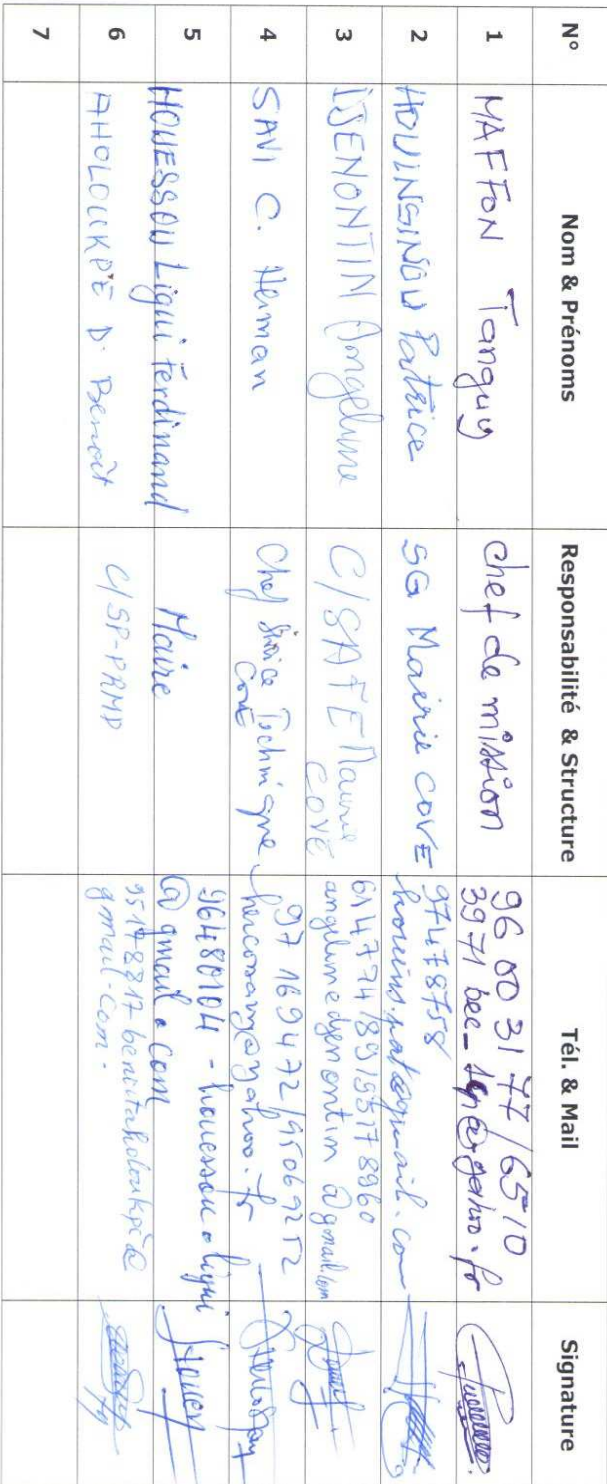 N° Nom & Prénoms Responsabilité & Structure Tél. & Mail Signature
1 MAFFON Tanguy chef de mission 96 00 31 77 / 65 10
39 71 bec_
2 HOUINSINOU Patrice SG Mairie COVE 97478758
3 DJENONTIN Angeline C/SAFE Mairie
COVE
angelinedjenontin@gmail.com
4 SAVI C. Herman Chef Service Technique
Cové
97169472/95069252
5 HOUESSOU Ligui Ferdinand Maire 96480104 - houessou.ligui
@gmail.com
6 AHOLOUKPE D. Benoît C/SP-PRMP
95178217 benoitaholoukpe@
gmail.com.
7